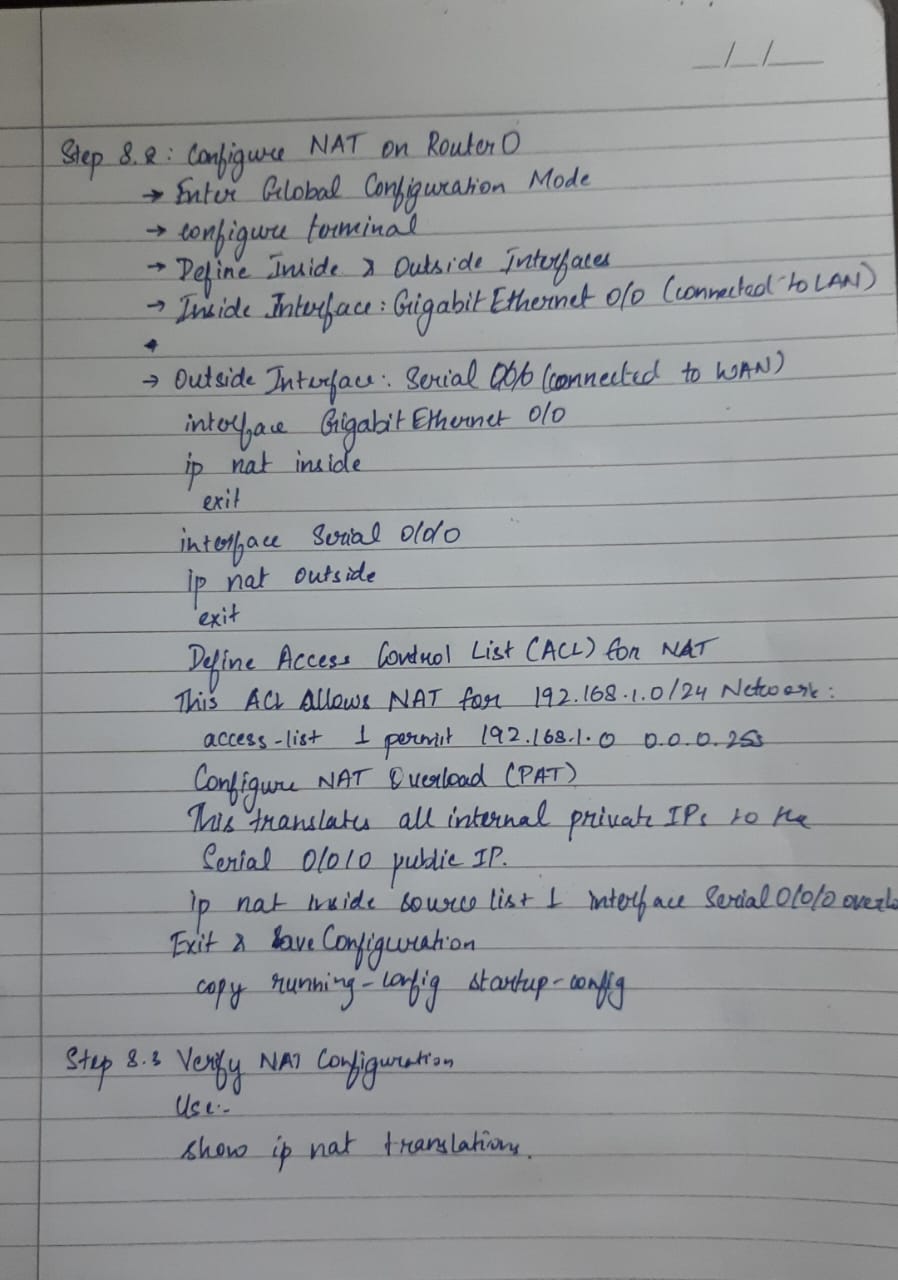 _/_/_
Step 8.2: Configure NAT on Router0
→ Enter Global Configuration Mode
→ configure terminal
→ Define Inside & Outside Interfaces
→ Inside Interface: Gigabit Ethernet 0/0 (connected to LAN)
→ Outside Interface: Serial 0/0/0 (connected to WAN)
interface Gigabit Ethernet 0/0
ip nat inside
exit
interface Serial 0/0/0
ip nat outside
exit
Define Access Control List (ACL) for NAT
This ACL Allows NAT for 192.168.1.0/24 Network:
access-list 1 permit 192.168.1.0 0.0.0.255
Configure NAT Overload (PAT)
This translates all internal private IPs to the
Serial 0/0/0 public IP.
ip nat inside source list 1 interface Serial 0/0/0 overlo
Exit & Save Configuration
copy running-config startup-config
Step 8.3 Verify NAT Configuration
Use:-
show ip nat translations.